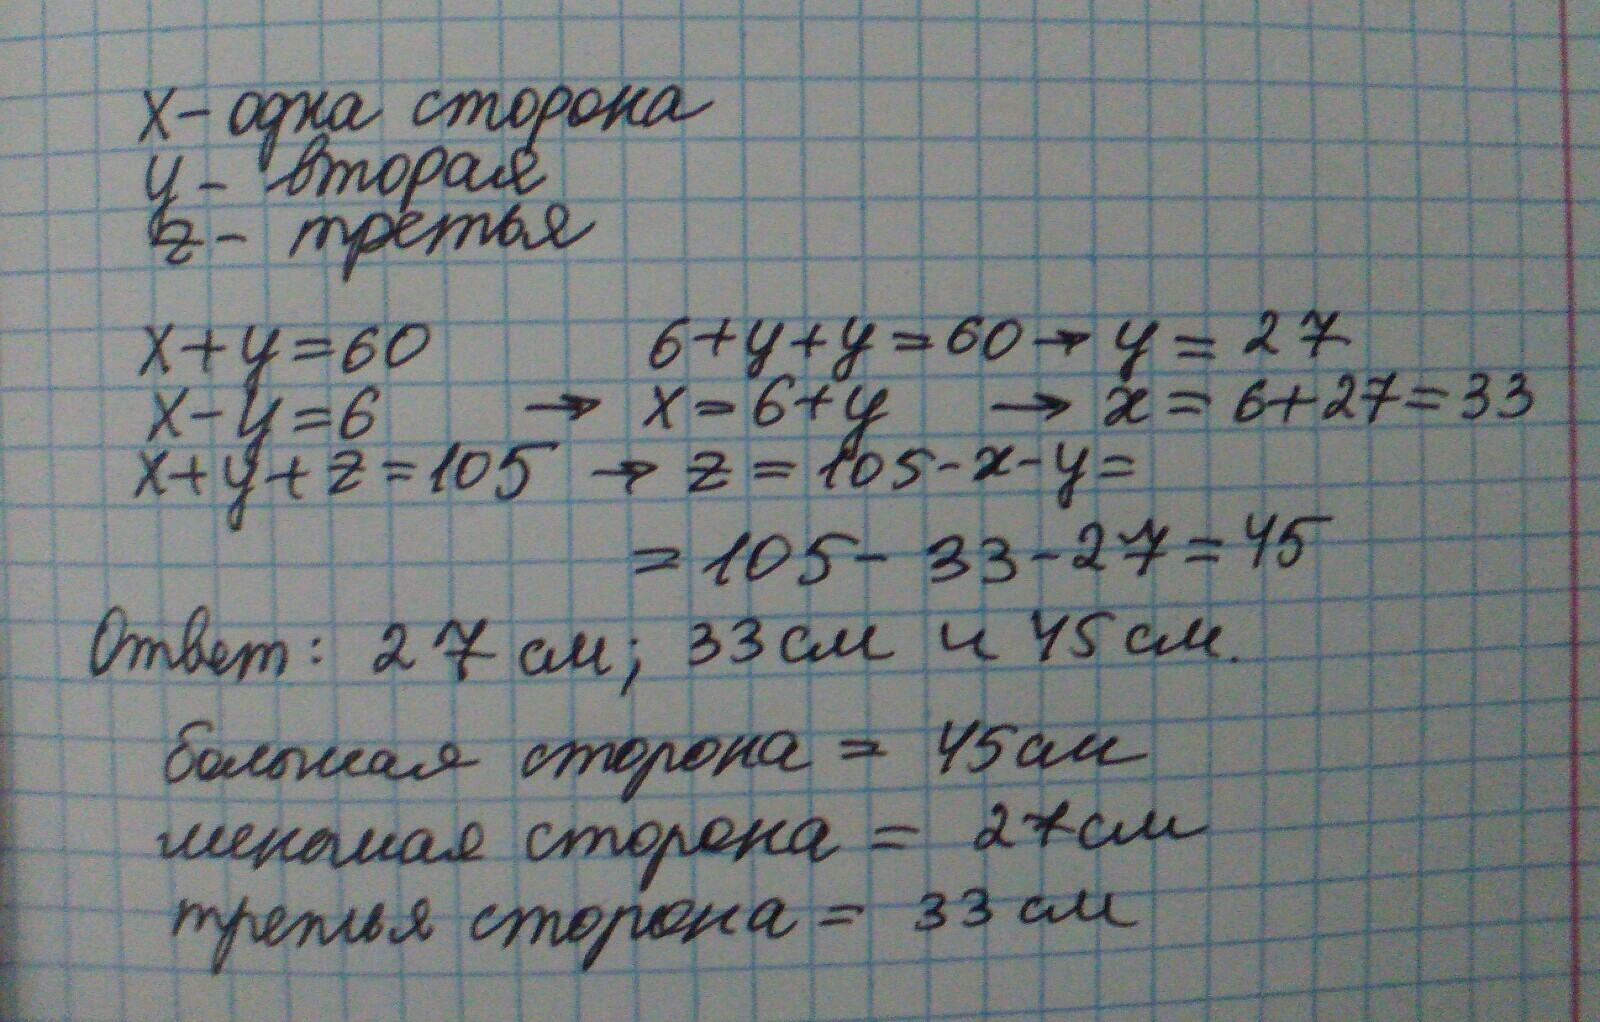 x - одна сторона
y - вторая
z - третья
x + y = 60 6 + y + y = 60 → y = 27
x - y = 6 → x = 6 + y → x = 6 + 27 = 33
x + y + z = 105 → z = 105 - x - y =
= 105 - 33 - 27 = 45
Ответ: 27 см; 33 см и 45 см.
большая сторона = 45 см
меньшая сторона = 27 см
третья сторона = 33 см